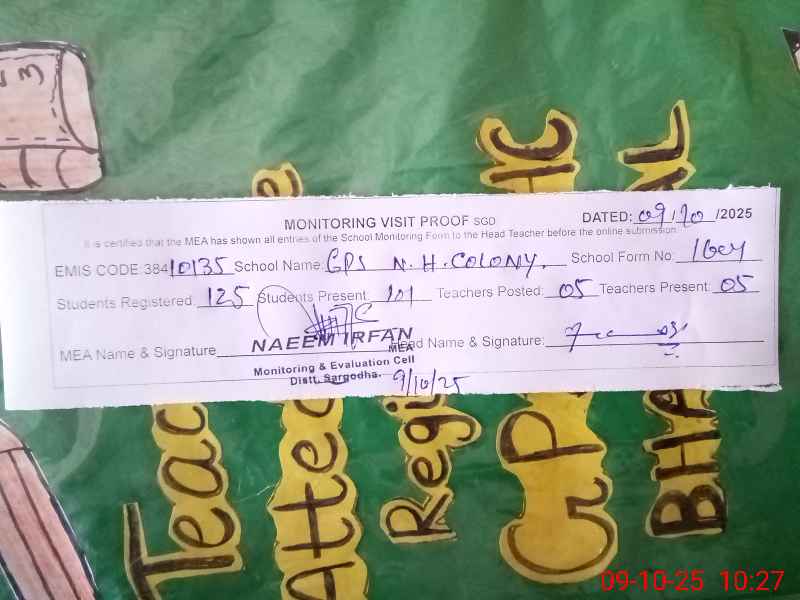 MONITORING VISIT PROOF SGD DATED: 09/10/2025
It is certified that the MEA has shown all entries of the School Monitoring Form to the Head Teacher before the online submission.
EMIS CODE:38410135 School Name: GPS N.H.COLONY. School Form No:
Students Registered: 125 Students Present: 101 Teachers Posted: 05 Teachers Present: 05
MEA Name & Signature NAEEM IRFAN Head Name & Signature:
MEA
Monitoring & Evaluation Cell
Distt. Sargodha. 9/10/25
GPS
09-10-25 10:27